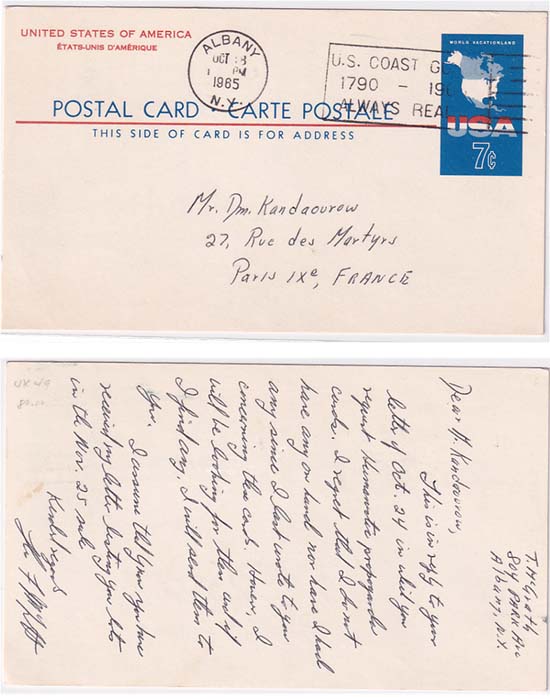 UNITED STATES OF AMERICA
ÉTATS-UNIS D'AMÉRIQUE
ALBANY
OCT
PM
1965
N.Y.
U.S. COAST G
1790 - 19
ALWAYS REA
WORLD VACATIONLAND
USA
7c
POSTAL CARD · CARTE POSTALE
THIS SIDE OF CARD IS FOR ADDRESS
Mr. Dm. Kandaourow
27, Rue des Martyrs
Paris IXe, FRANCE
T. McGrath
804 Park Ave
Albany, N.Y.
Dear M. Kandaourow,
This is in reply to your
letter of Oct. 24 in which you
request
cards. I regret that I do not
have any on hand nor have I had
any since I last wrote to you
concerning these cards. However, I
will be looking for them and if
I find any, I will send them to
you.
I assume that you
received my letter listing your lots
in the Nov. 25 sale
Kindest regards